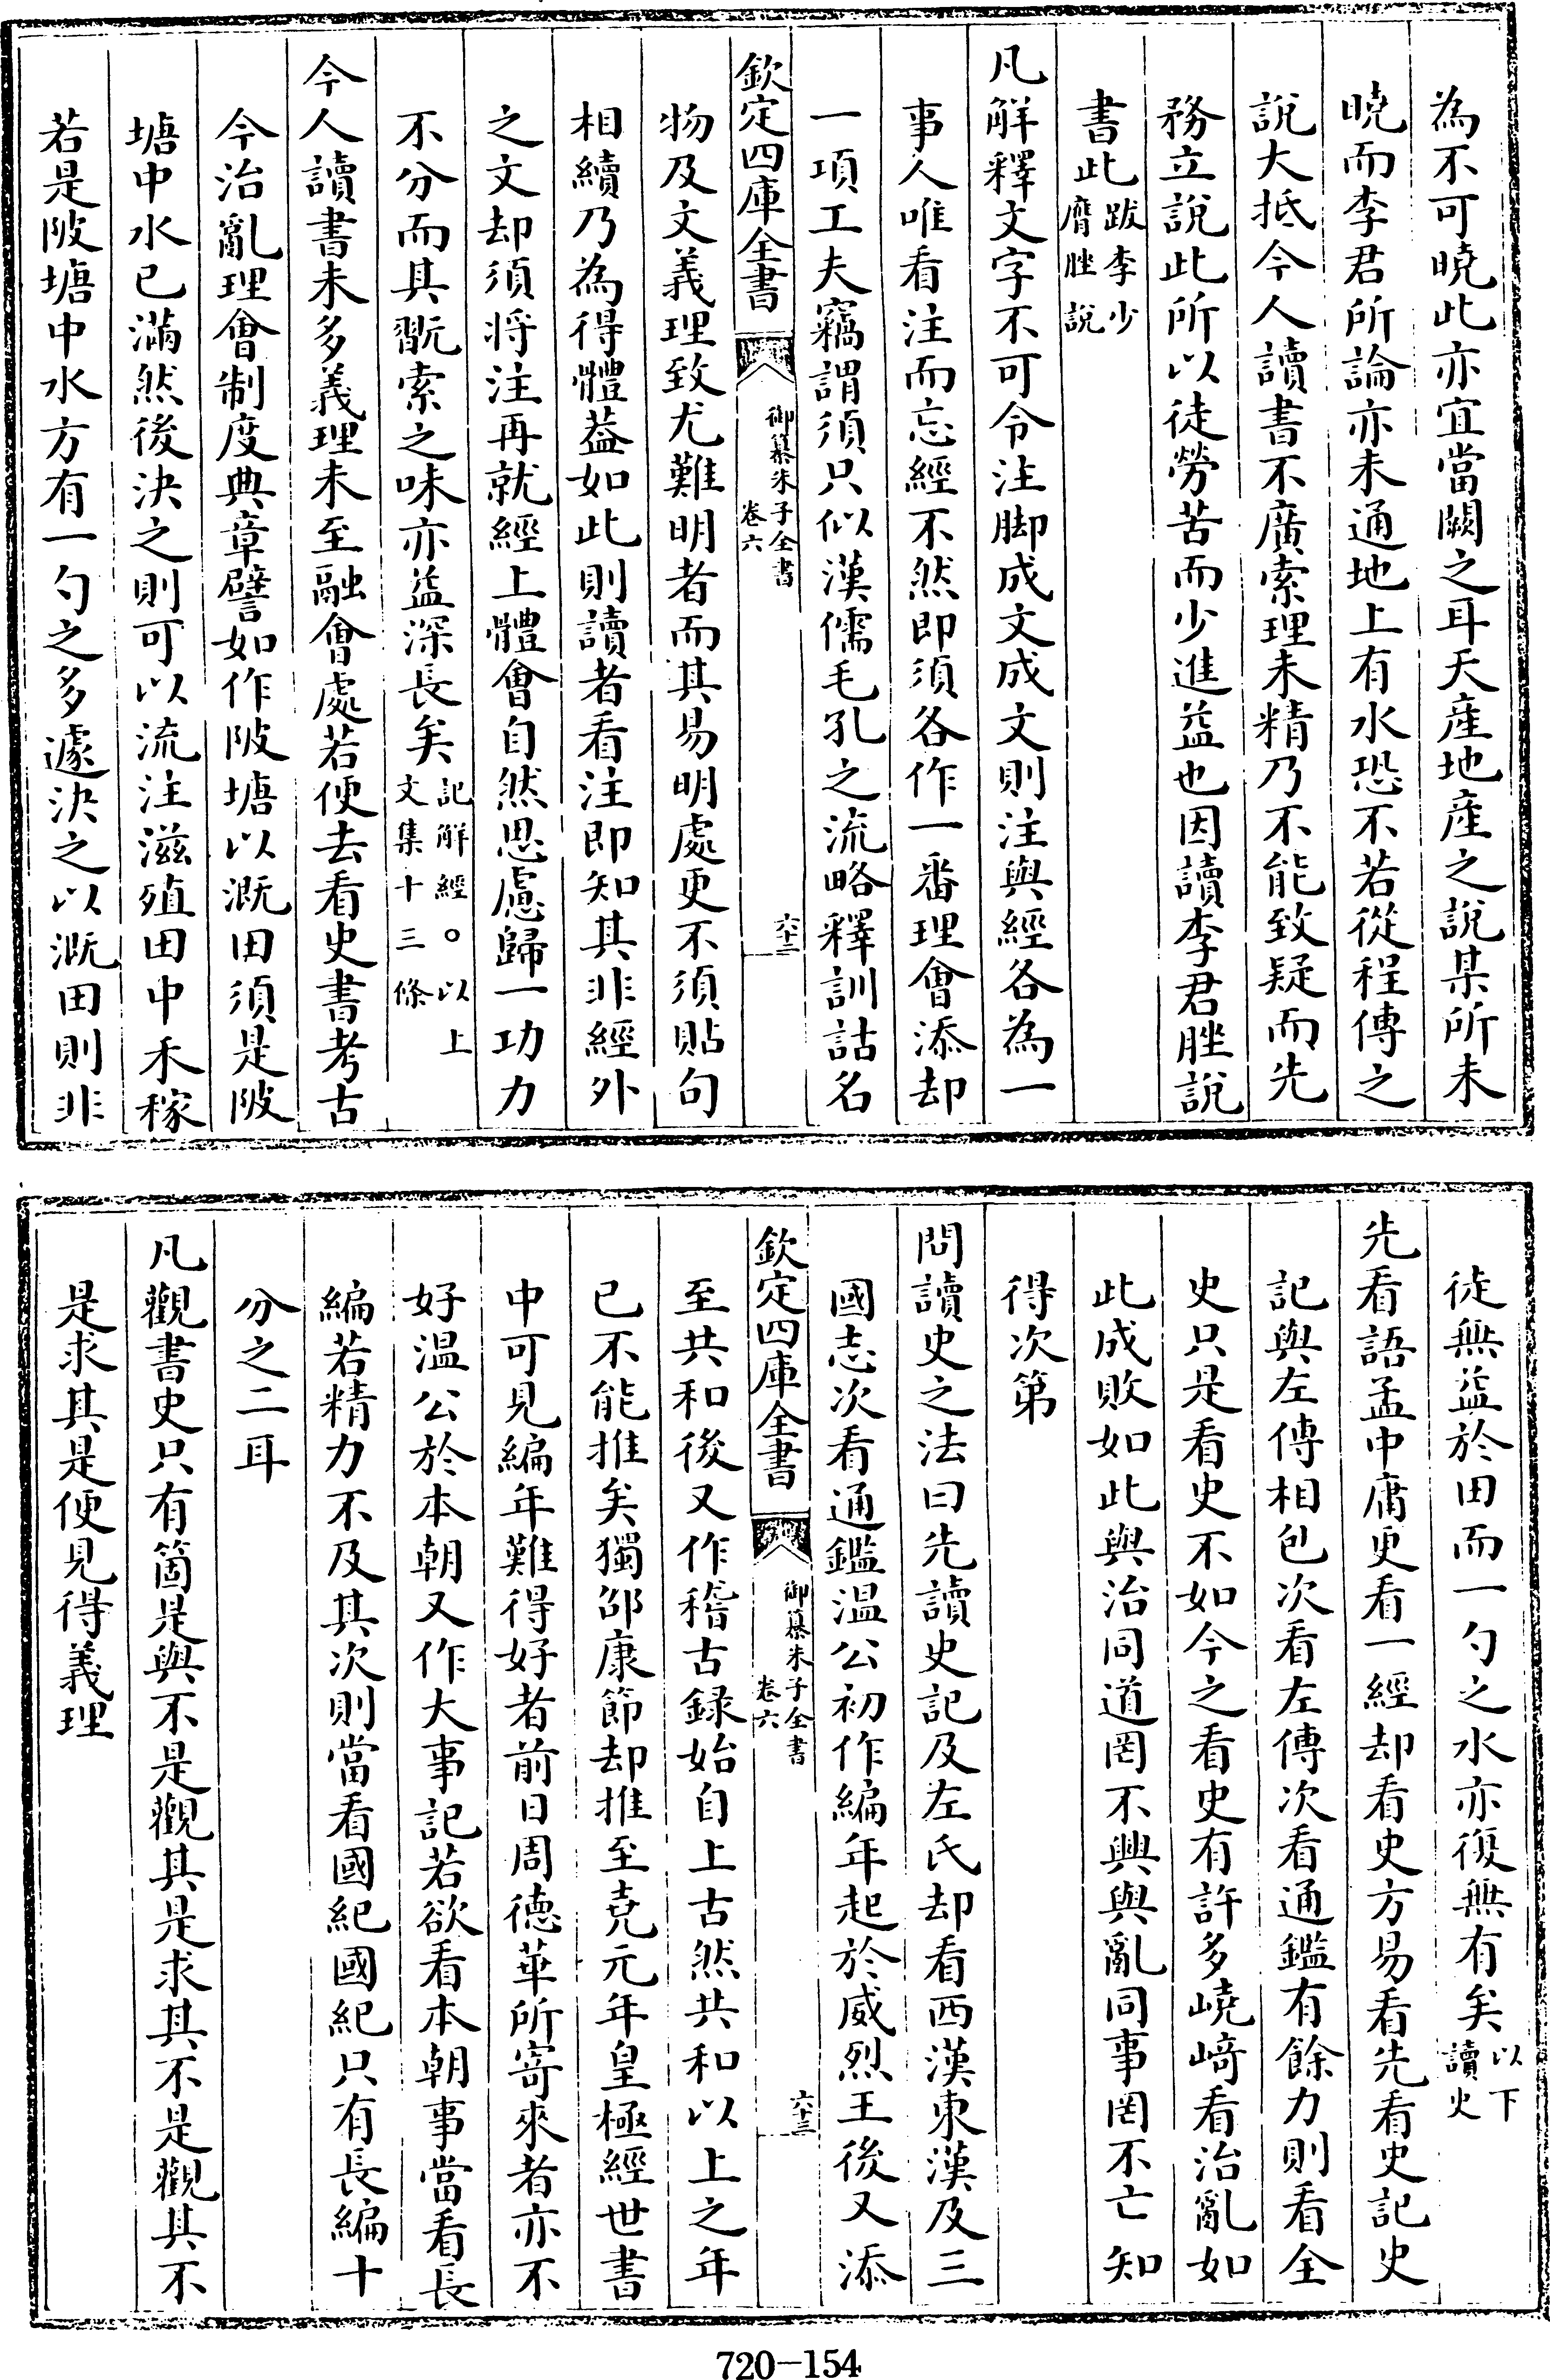 為不可曉此亦宜當闕之耳天産地産之說某所未
曉而李君所論亦未通地上有水恐不若從程傳之
說大抵今人讀書不廣索理未精乃不能致疑而先
務立說此所以徒勞苦而少進益也因讀李君脞說
書此跋李少膺脞說
凡解釋文字不可令注脚成文成文則注與經各為一
事人唯看注而忘經不然即須各作一番理會添却
一項工夫竊謂須只似漢儒毛孔之流略釋訓詁名
欽定四庫全書 御纂朱子全書 卷六 六十三
物及文義理致尤難明者而其易明處更不須貼句
相續乃為得體葢如此則讀者看注即知其非經外
之文却須將注再就經上體會自然思慮歸一功力
不分而其翫索之味亦益深長矣記解經○以上文集十三條
今人讀書未多義理未至融會處若便去看史書考古
今治亂理會制度典章譬如作陂塘以溉田須是陂
塘中水已滿然後決之則可以流注滋殖田中禾稼
若是陂塘中水方有一勺之多遽決之以溉田則非
徒無益於田而一勺之水亦復無有矣以下讀史
先看語孟中庸更看一經却看史方易看先看史記史
記與左傳相包次看左傳次看通鑑有餘力則看全
史只是看史不如今之看史有許多嶢﨑看治亂如
此成敗如此與治同道罔不興與亂同事罔不亡知
得次第
問讀史之法曰先讀史記及左氏却看西漢東漢及三
國志次看通鑑温公初作編年起於威烈王後又添
欽定四庫全書 御纂朱子全書 卷六 六十三
至共和後又作稽古録始自上古然共和以上之年
已不能推矣獨邵康節却推至堯元年皇極經世書
中可見編年難得好者前日周徳華所寄來者亦不
好温公於本朝又作大事記若欲看本朝事當看長
編若精力不及其次則當看國紀國紀只有長編十
分之二耳
凡觀書史只有箇是與不是觀其是求其不是觀其不
是求其是便見得義理
720-154